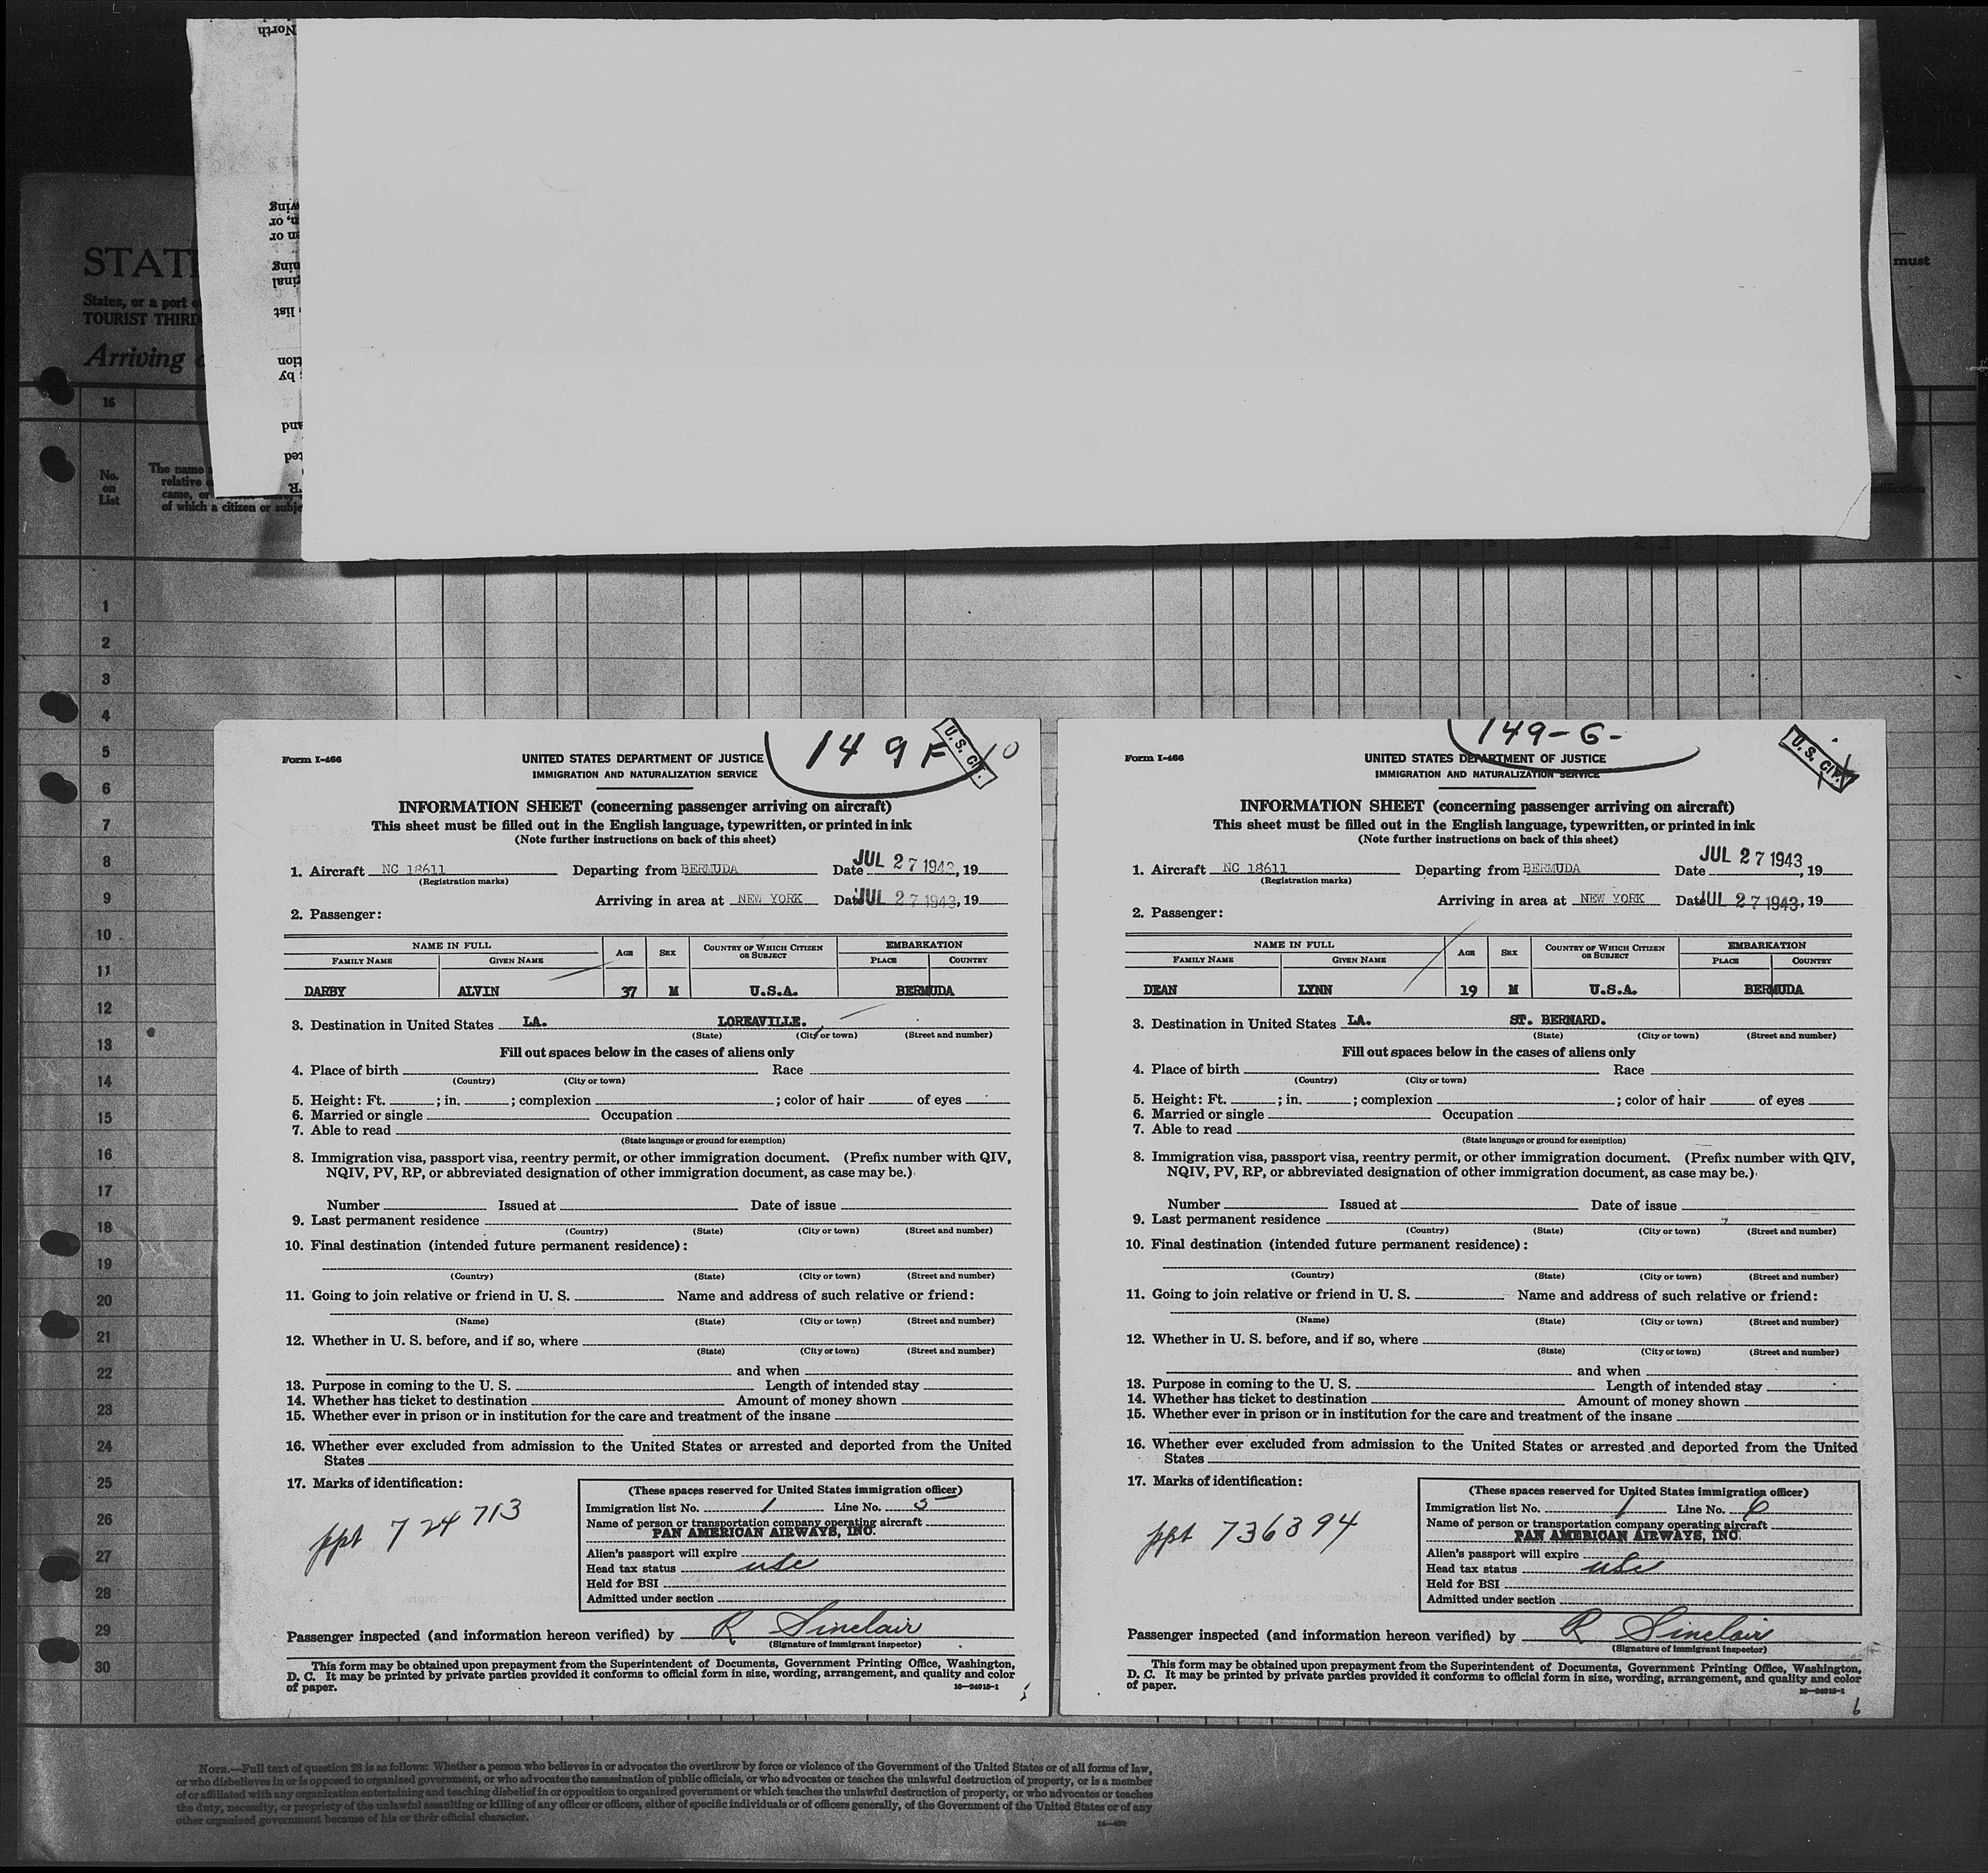 North
STAT
States, or a port o
TOURIST THIRD
Arriving
must
16
No.
on
List
The name
relative
came, or
of which a citizen or subje
1
2
3
4
5
6
7
8
9
10
11
12
13
14
15
16
17
18
19
20
21
22
23
24
25
26
27
28
29
30
149F
U.S. CIT.
10
Form I-466
UNITED STATES DEPARTMENT OF JUSTICE
IMMIGRATION AND NATURALIZATION SERVICE
INFORMATION SHEET (concerning passenger arriving on aircraft)
This sheet must be filled out in the English language, typewritten, or printed in ink
(Note further instructions on back of this sheet)
1. Aircraft NC 18611 Departing from BERMUDA Date JUL 27 1943, 19
(Registration marks)
Arriving in area at NEW YORK Date JUL 27 1943, 19
2. Passenger:
NAME IN FULL AGE SEX COUNTRY OF WHICH CITIZEN OR SUBJECT EMBARKATION
FAMILY NAME GIVEN NAME PLACE COUNTRY
DARBY ALVIN 37 M U.S.A. BERMUDA
3. Destination in United States LA. LOREAVILLE.
(State) (City or town) (Street and number)
Fill out spaces below in the cases of aliens only
4. Place of birth Race
(Country) (City or town)
5. Height: Ft. ; in. ; complexion ; color of hair of eyes
6. Married or single Occupation
7. Able to read
(State language or ground for exemption)
8. Immigration visa, passport visa, reentry permit, or other immigration document. (Prefix number with QIV,
NQIV, PV, RP, or abbreviated designation of other immigration document, as case may be.)
Number Issued at Date of issue
9. Last permanent residence
(Country) (State) (City or town) (Street and number)
10. Final destination (intended future permanent residence):
(Country) (State) (City or town) (Street and number)
11. Going to join relative or friend in U. S. Name and address of such relative or friend:
(Name) (State) (City or town) (Street and number)
12. Whether in U. S. before, and if so, where
(State) (City or town) (Street and number)
and when
13. Purpose in coming to the U. S. Length of intended stay
14. Whether has ticket to destination Amount of money shown
15. Whether ever in prison or in institution for the care and treatment of the insane
16. Whether ever excluded from admission to the United States or arrested and deported from the United
States
17. Marks of identification:
ppt 724713
(These spaces reserved for United States immigration officer)
Immigration list No. 1 Line No. 5
Name of person or transportation company operating aircraft
PAN AMERICAN AIRWAYS, INC.
Alien's passport will expire
Head tax status usc
Held for BSI
Admitted under section
Passenger inspected (and information hereon verified) by R Sinclair
(Signature of immigrant inspector)
This form may be obtained upon prepayment from the Superintendent of Documents, Government Printing Office, Washington,
D. C. It may be printed by private parties provided it conforms to official form in size, wording, arrangement, and quality and color
of paper.
16—24915-1
5
149-G-
U.S. CIT.
Form I-466
UNITED STATES DEPARTMENT OF JUSTICE
IMMIGRATION AND NATURALIZATION SERVICE
INFORMATION SHEET (concerning passenger arriving on aircraft)
This sheet must be filled out in the English language, typewritten, or printed in ink
(Note further instructions on back of this sheet)
1. Aircraft NC 18611 Departing from BERMUDA Date JUL 27 1943, 19
(Registration marks)
Arriving in area at NEW YORK Date JUL 27 1943, 19
2. Passenger:
NAME IN FULL AGE SEX COUNTRY OF WHICH CITIZEN OR SUBJECT EMBARKATION
FAMILY NAME GIVEN NAME PLACE COUNTRY
DEAN LYNN 19 M U.S.A. BERMUDA
3. Destination in United States LA. ST. BERNARD.
(State) (City or town) (Street and number)
Fill out spaces below in the cases of aliens only
4. Place of birth Race
(Country) (City or town)
5. Height: Ft. ; in. ; complexion ; color of hair of eyes
6. Married or single Occupation
7. Able to read
(State language or ground for exemption)
8. Immigration visa, passport visa, reentry permit, or other immigration document. (Prefix number with QIV,
NQIV, PV, RP, or abbreviated designation of other immigration document, as case may be.)
Number Issued at Date of issue
9. Last permanent residence
(Country) (State) (City or town) (Street and number)
10. Final destination (intended future permanent residence):
(Country) (State) (City or town) (Street and number)
11. Going to join relative or friend in U. S. Name and address of such relative or friend:
(Name) (State) (City or town) (Street and number)
12. Whether in U. S. before, and if so, where
(State) (City or town) (Street and number)
and when
13. Purpose in coming to the U. S. Length of intended stay
14. Whether has ticket to destination Amount of money shown
15. Whether ever in prison or in institution for the care and treatment of the insane
16. Whether ever excluded from admission to the United States or arrested and deported from the United
States
17. Marks of identification:
ppt 736394
(These spaces reserved for United States immigration officer)
Immigration list No. 1 Line No. 6
Name of person or transportation company operating aircraft
PAN AMERICAN AIRWAYS, INC.
Alien's passport will expire
Head tax status usc
Held for BSI
Admitted under section
Passenger inspected (and information hereon verified) by R Sinclair
(Signature of immigrant inspector)
This form may be obtained upon prepayment from the Superintendent of Documents, Government Printing Office, Washington,
D. C. It may be printed by private parties provided it conforms to official form in size, wording, arrangement, and quality and color
of paper.
16—24915-1
6
NOTE.—Full text of question 28 is as follows: Whether a person who believes in or advocates the overthrow by force or violence of the Government of the United States or of all forms of law,
or who disbelieves in or is opposed to organized government, or who advocates the assassination of public officials, or who advocates or teaches the unlawful destruction of property, or is a member
of or affiliated with any organization entertaining and teaching disbelief in or opposition to organized government or which teaches the unlawful destruction of property, or who advocates or teaches
the duty, necessity, or propriety of the unlawful assaulting or killing of any officer or officers, either of specific individuals or of officers generally, of the Government of the United States or of any
other organized government because of his or their official character.